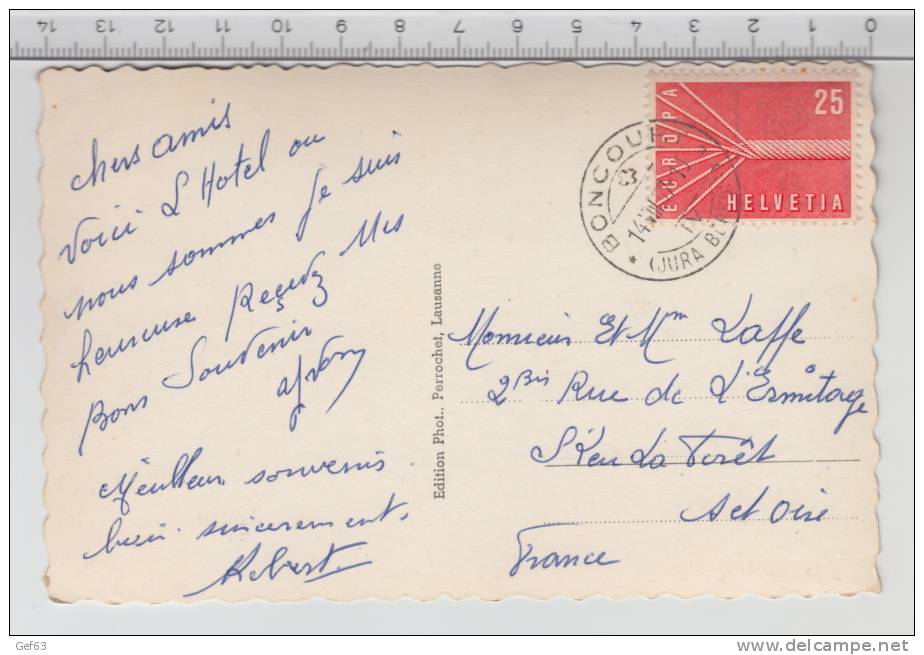 14 13 12 11 10 9 8 7 6 5 4 3 2 1 0
chers amis
voici L Hotel ou
nous sommes je suis
heureuse Reçevez Mes
Bons Souvenir
Meilleur souvenirs
bien sincerement.
Robert
Edition Phot.. Perrochet, Lausanne
EUROPA
25
HELVETIA
BONCOU
(JURA BE
Monsieur Et Mm Laffe
2Bis Rue de L'Ermitage
St Leu La Forêt
S et Oise
France
Gef63
www.delcampe.net